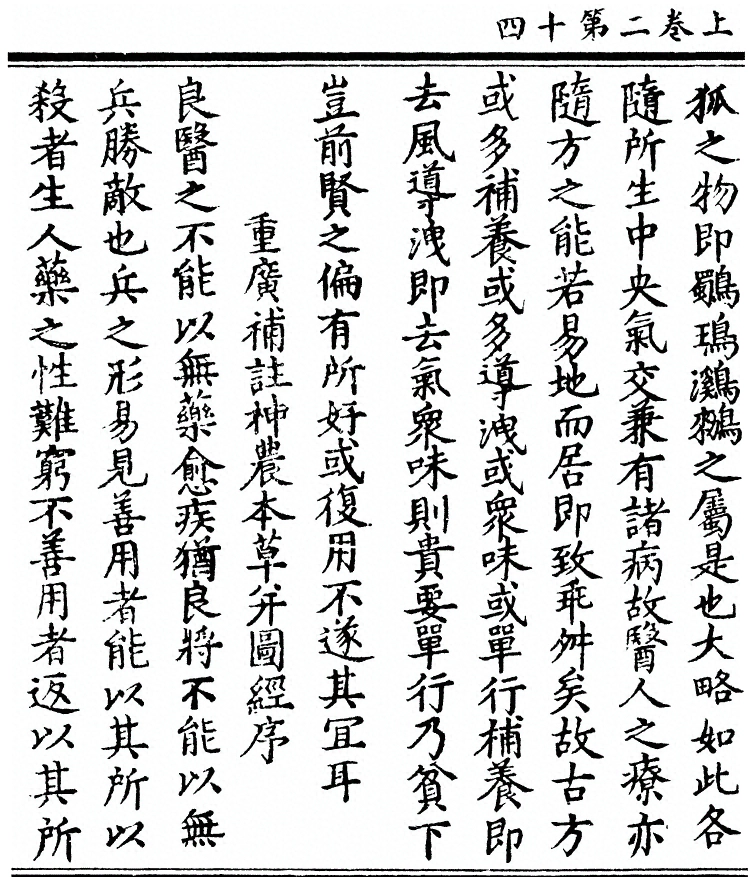 上卷二第十四
狐之物即鸀鳿鸂鶒之屬是也大略如此各
隨所生中央氣交兼有諸病故醫人之療亦
隨方之能若易地而居即致乖舛矣故古方
或多補養或多導洩或衆味或單行補養即
去風導洩即去氣衆味則貴要單行乃貧下
豈前賢之偏有所好或復用不遂其冝耳
重廣補註神農本草并圖經序
良醫之不能以無藥愈疾猶良將不能以無
兵勝敵也兵之形易見善用者能以其所以
殺者生人藥之性難窮不善用者返以其所